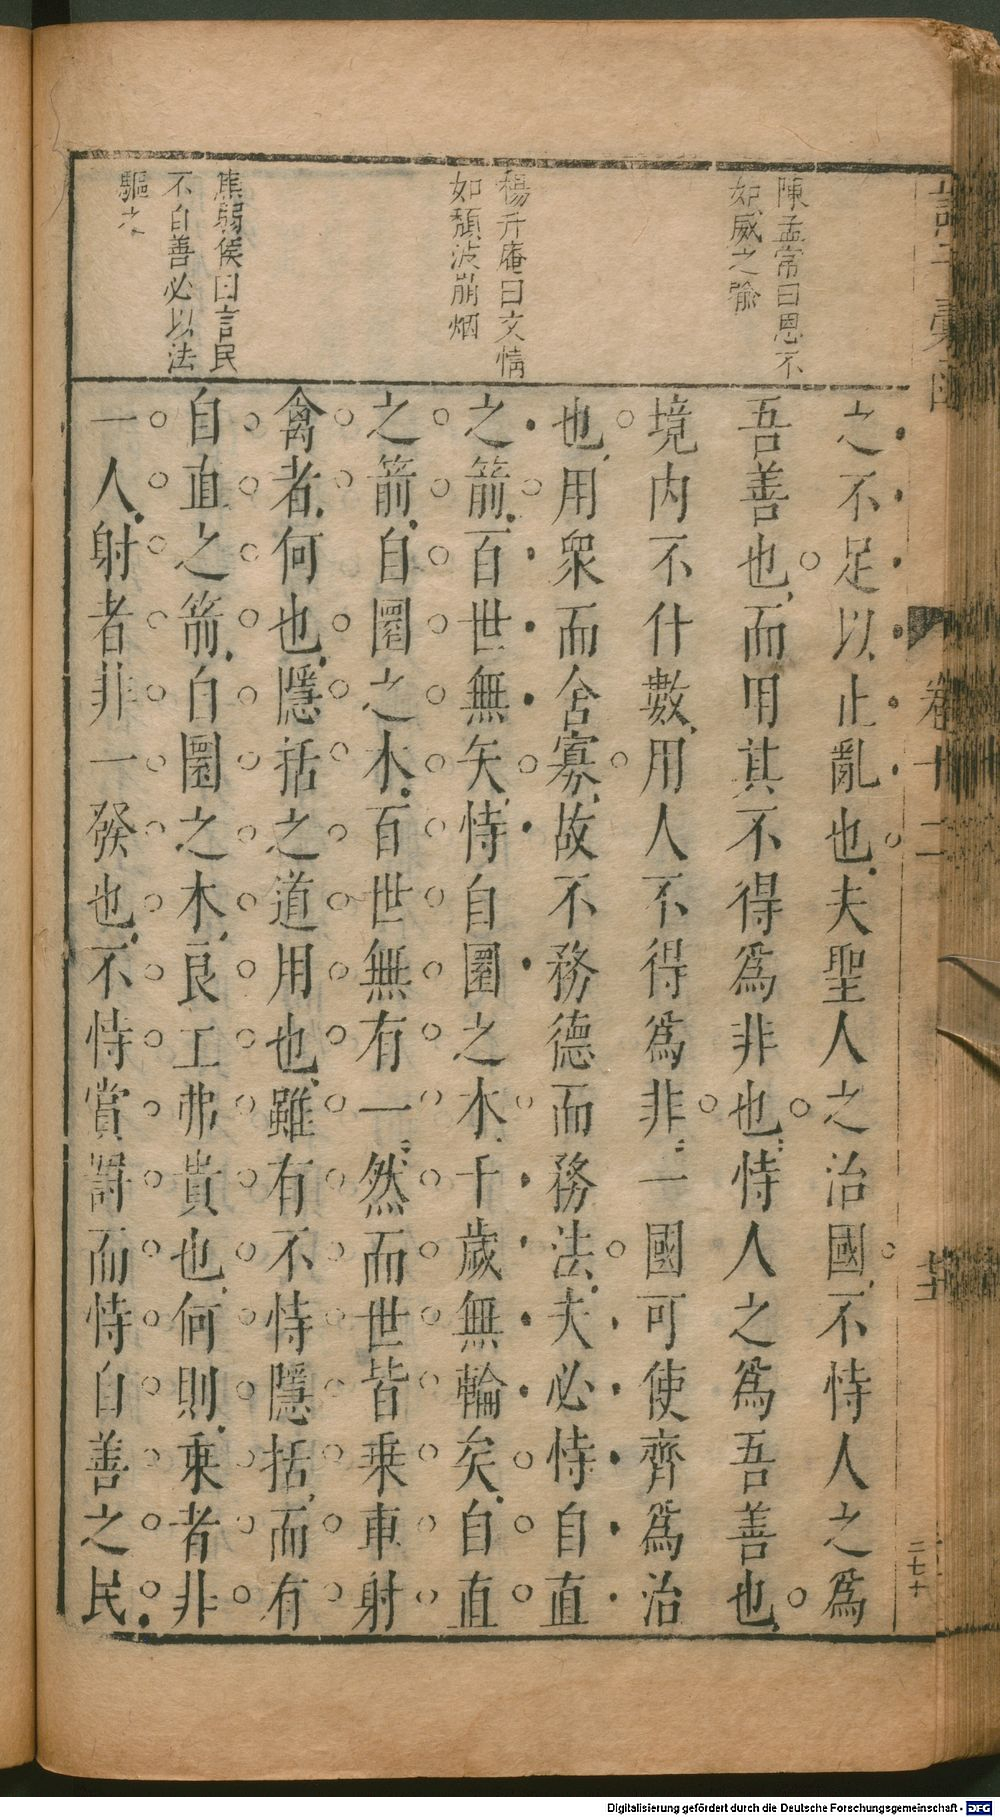 陳孟常曰恩不
如威之喻
楊升庵曰文情
如頽波崩烟
焦弱侯曰言民
不自善必以法
驅之
之不足以止亂也夫聖人之治國不恃人之爲
吾善也而用其不得爲非也恃人之爲吾善也
境内不什數用人不得爲非一國可使齊爲治
也用眾而舍寡故不務德而務法夫必恃自直
之箭百世無矢恃自圜之木千歲無輪矣自直
之箭自圜之木百世無有一然而世皆乗車射
禽者何也隱括之道用也雖有不恃隱括而有
自直之箭自圜之木良工弗貴也何則乗者非
一人射者非一發也不恃賞罰而恃自善之民
卷十二
二七十
Digitalisierung gefördert durch die Deutsche Forschungsgemeinschaft - DFG